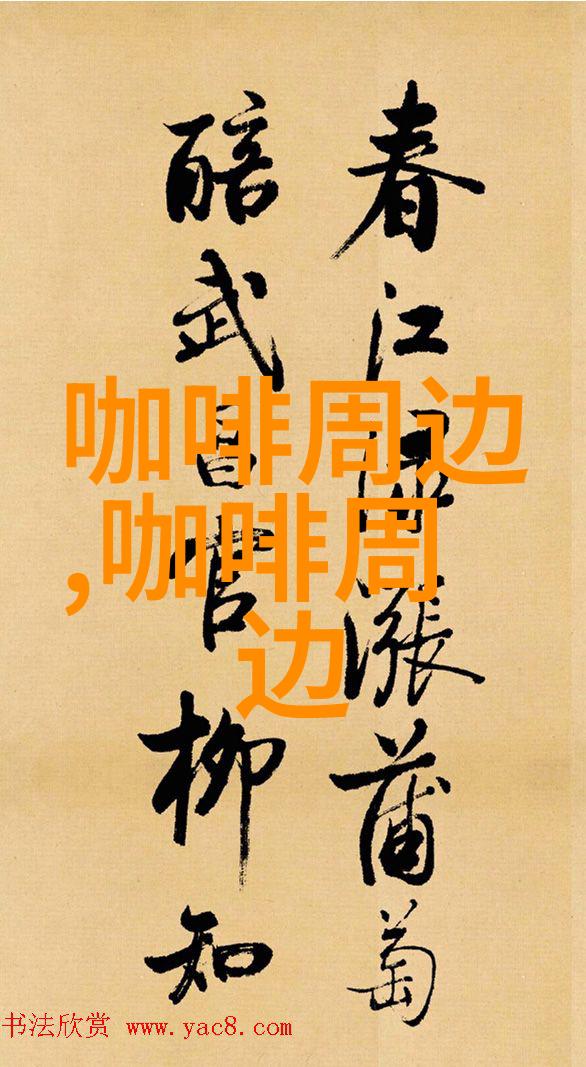 春江漲蒲萄
醅武昌官柳知
咖啡周边
,咖啡周
边
书法欣赏 www.yac8.com